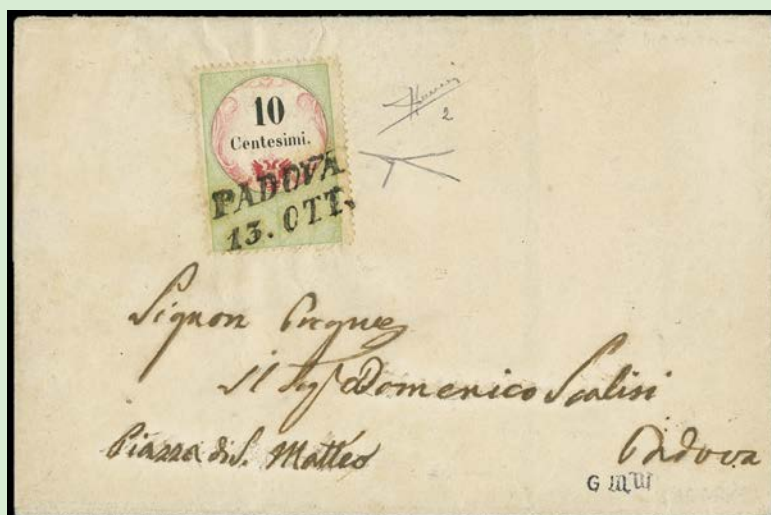 10
Centesimi.
PADOVA
13. OTT.
2
Signor
Domenico Scalisi
Piazza di S. Matteo
Padova
G